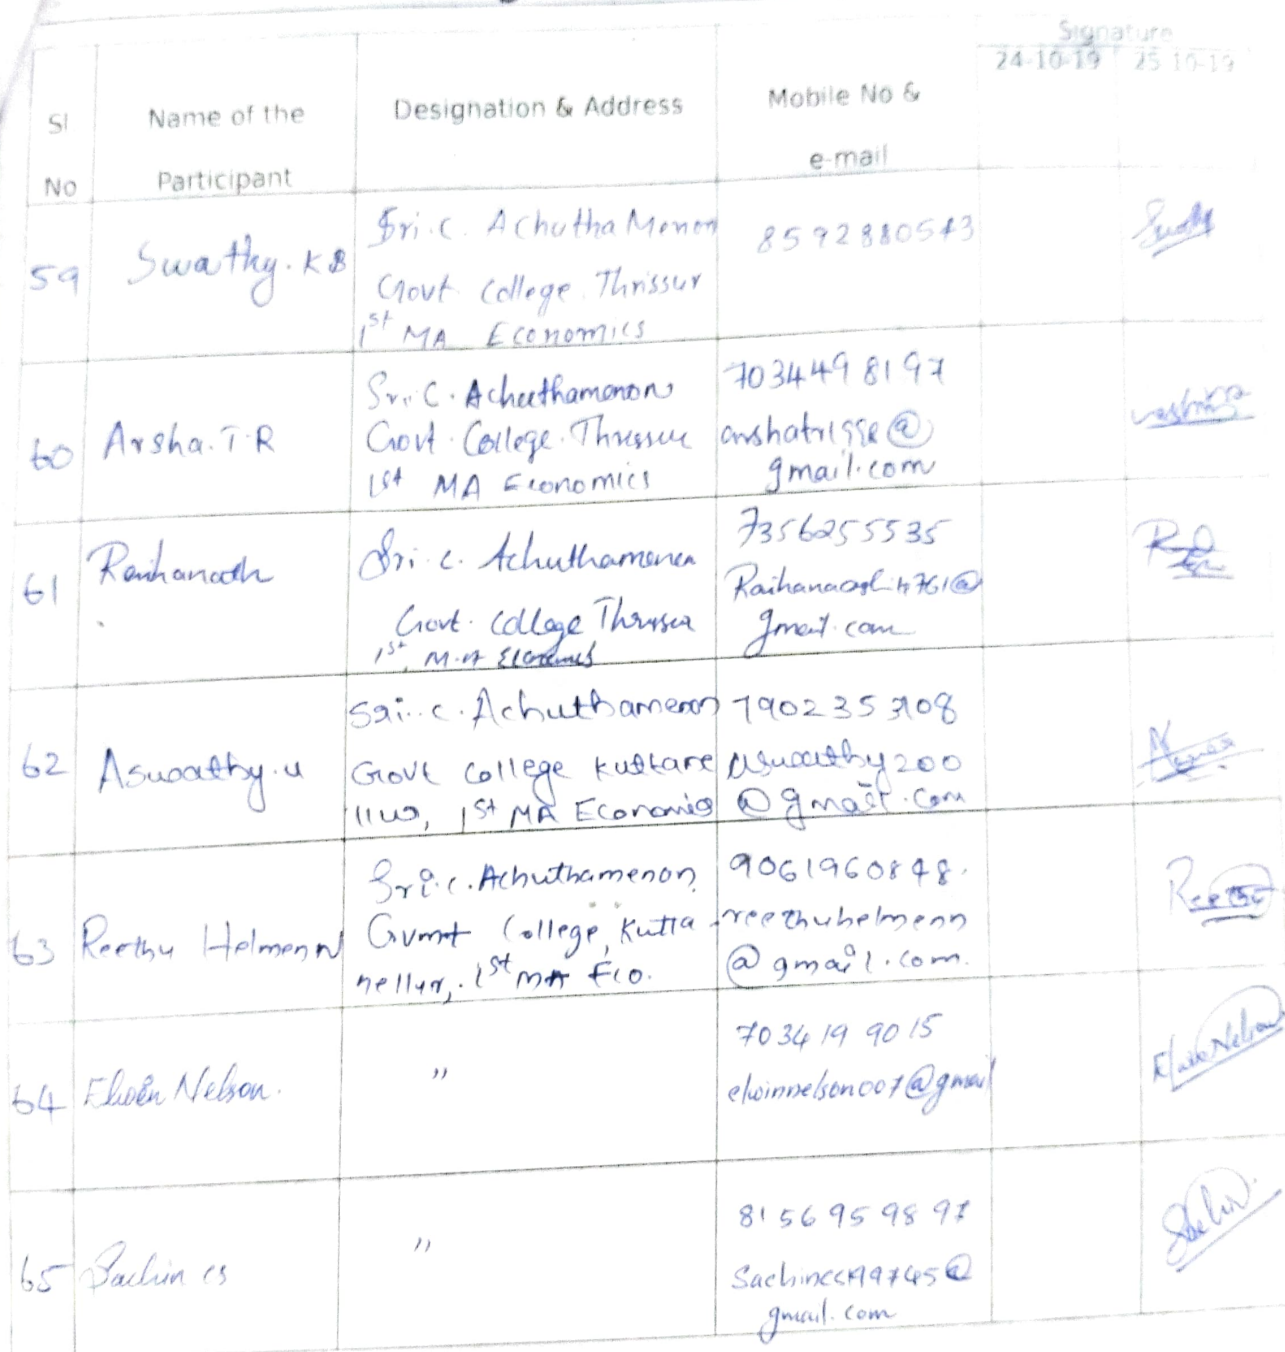 Signature
24-10-19 25-10-19
Sl
No
Name of the
Participant
Designation & Address
Mobile No &
e-mail
59
Swathy. K B
Sri. C. Achutha Menon
Govt College Thrissur
1st MA Economics
8592880543
60
Arsha. T. R
Sri. C. Achuthamenon
Govt. College. Thrissur
1st MA Economics
7034498197
gmail.com
61
Raihanath
Sri. C. Achuthamenon
Govt. College Thrissur
1st M.A Economics
7356255535
gmail.com
62
Aswathy. u
Sri. C. Achuthamenon
Govt College Kuttane
llur, 1st MA Economics
aswathy200
@gmail.com
63
Reethu Helmenn
Sri. C. Achuthamenon
Gvmt College, Kutta
nellur, 1st MA Eco.
9061960848.
reethuhelmenn
@gmail.com.
64
Elwin Nelson.
"
7034199015
elwinnelson007@gmail
Elwin Nelson
65
Sachin cs
"
8156959897
gmail.com
Sachin